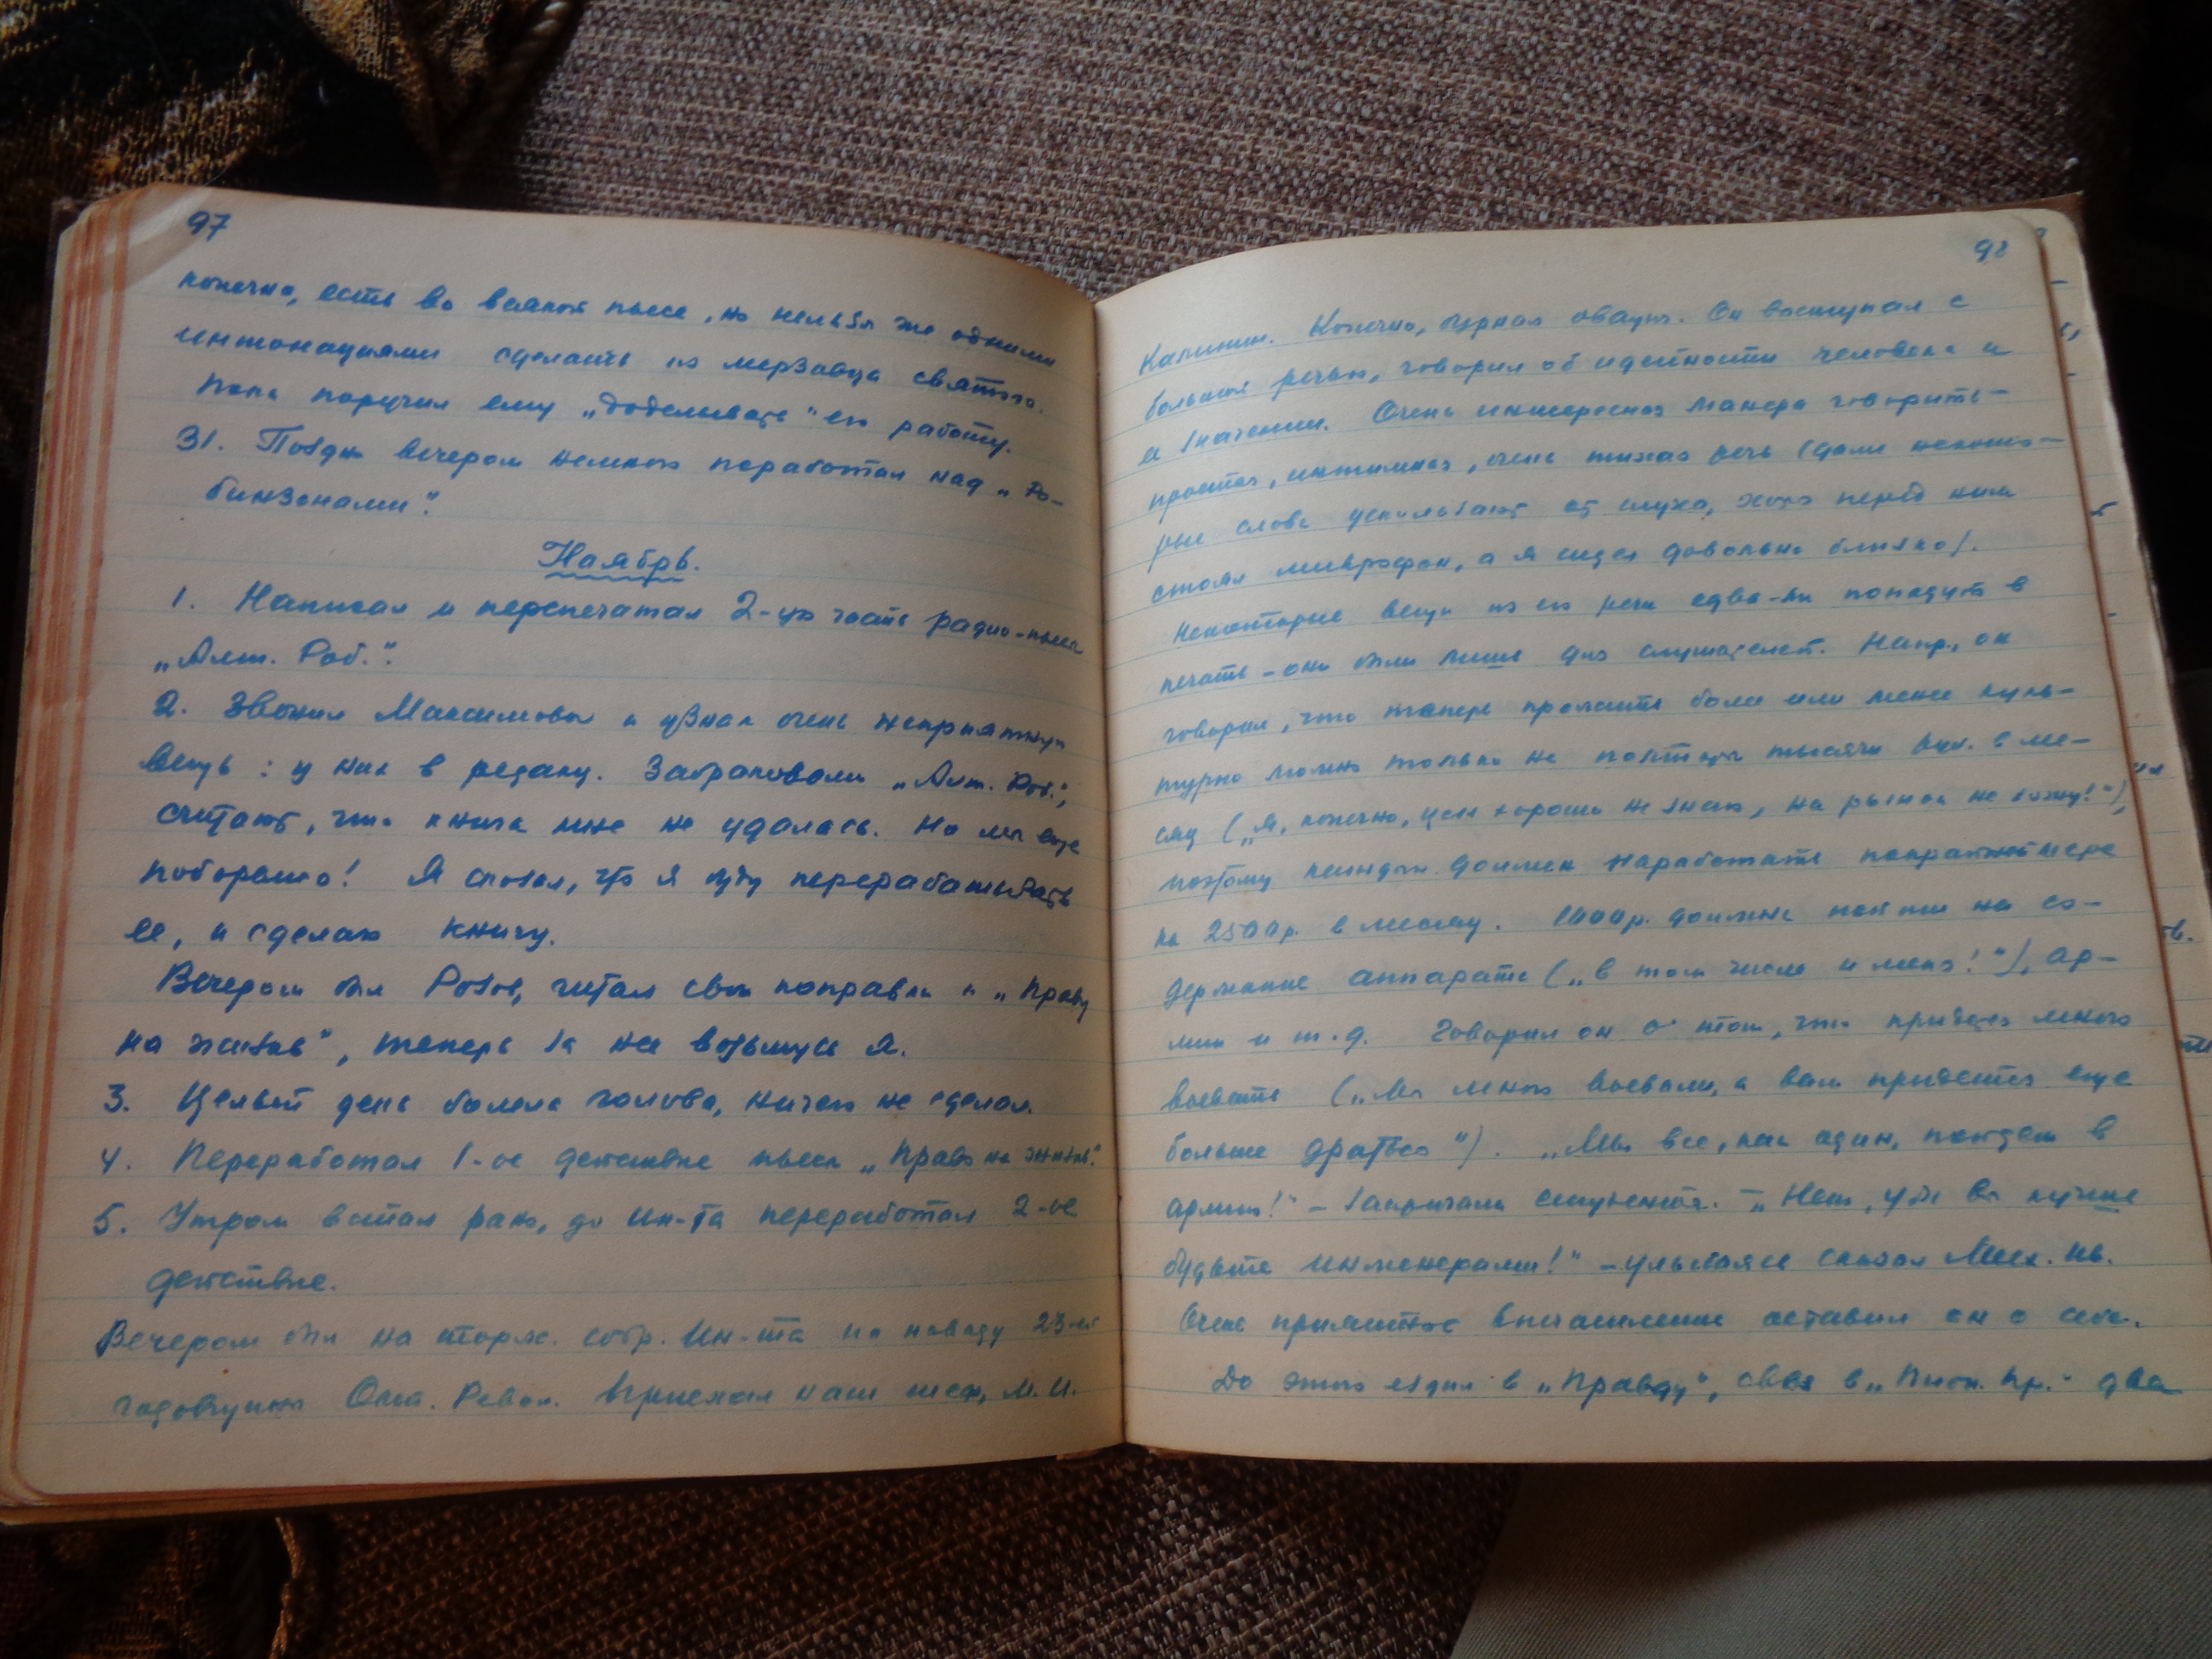 97
конечно, есть во всякой пьесе, но нельзя же одними
интонациями сделать из мерзавца святого.
Папа поручил ему „доделывать" его работу.
31. Поздно вечером немного поработал над „Ро-
бинзонами".
Ноябрь.
1. Написал и перепечатал 2-ую часть радио-пьесы
„Алт. Роб.".
2. Звонил Максимовой и узнал очень неприятную
вещь: у них в редакц. забраковали „Алт. Роб.",
считают, что книга мне не удалась. Но мы еще
поборемся! Я сказал, что я буду перерабатывать
ее, и сделаю книгу.
Вечером был Розов, читал свои поправки к „Праву
на жизнь", теперь за нее возьмусь я.
3. Целый день болела голова, ничего не сделал.
4. Переработал 1-ое действие пьесы „Право на жизнь".
5. Утром встал рано, до Ин-та переработал 2-ое
действие.
Вечером был на торж. собр. Ин-та по поводу 23-ей
годовщины Окт. Револ. Приехал наш шеф, М.И.
98
Калинин. Конечно, бурная овация. Он выступал с
большой речью, говорил об идейности человека и
ее значении. Очень интересная манера говорить -
простая, интимная, очень тихая речь (даже некото-
рые слова ускользают от слуха, хотя перед ним
стоял микрофон, а я сидел довольно близко).
Некоторые вещи из его речи едва-ли попадут в
печать - они были лишь для слушателей. Напр., он
говорил, что теперь прожить более или менее куль-
турно можно только на полторы тысячи руб. в ме-
сяц („я, конечно, цен хорошо не знаю, на рынок не хожу!"),
поэтому каждый должен наработать по крайней мере
на 2500 р. в месяц. 1000 р. должны пойти на со-
держание аппарата („в том числе и меня!"), ар-
мии и т.д. Говорил он о том, что придется много
воевать („Мы много воевали, а вам придется еще
больше драться"). „Мы все, как один, пойдем в
армию!" - закричали студенты. - „Нет, уж вы лучше
будьте инженерами!" - улыбаясь сказал Мих. Ив.
Очень приятное впечатление оставил он о себе.
До этого ездил в „Правду", сдал в „Пион. Пр." два